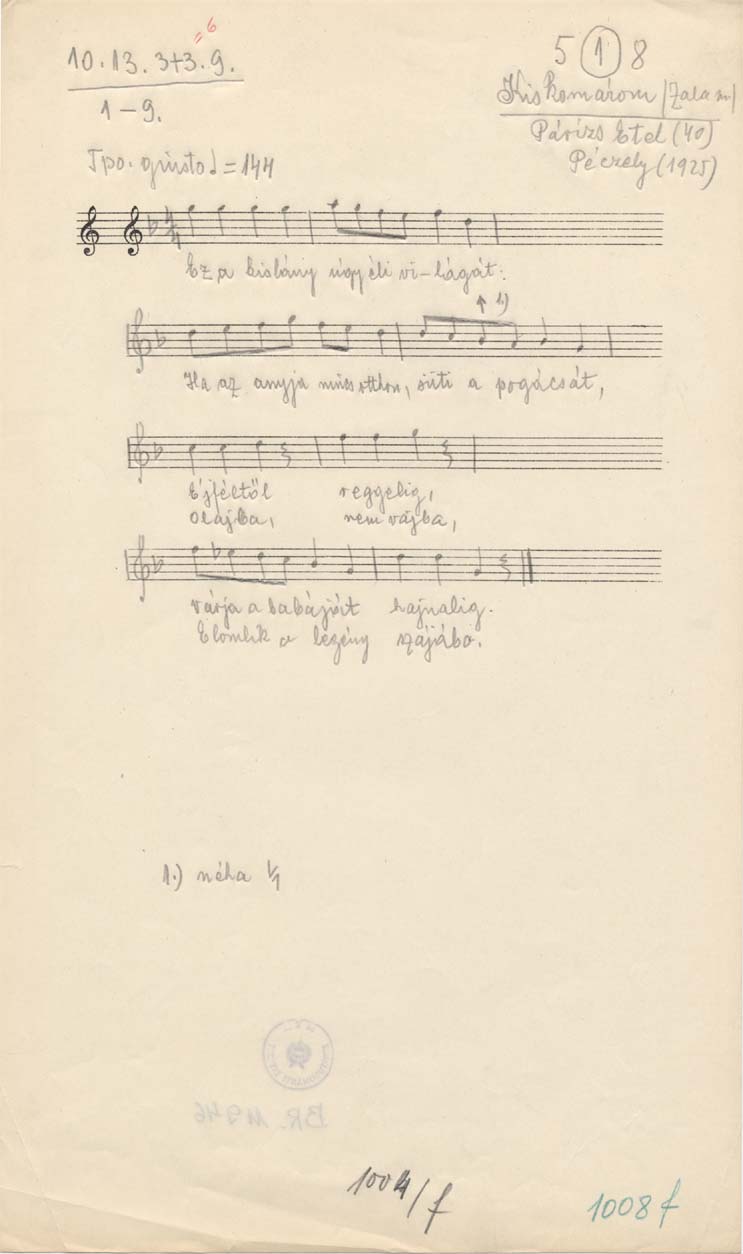 =6
10. 13. 3+3. 9.
1 – 9.
5 1 8
Kiskomárom (Zala m)
Párizs Etel (40)
Péczely (1925)
Tpo. giusto ♩ = 144
4/4
Ez a kislány úgy éli vi–lágát:
↑ 1.)
Ha az anyja nincs otthon, süti a pogácsát,
Éjféltől reggelig,
Olajba, nem vajba,
várja a babáját hajnalig.
Elomlik a legény szájába.
1.) néha
BR. 11946
1004/f
1008 f